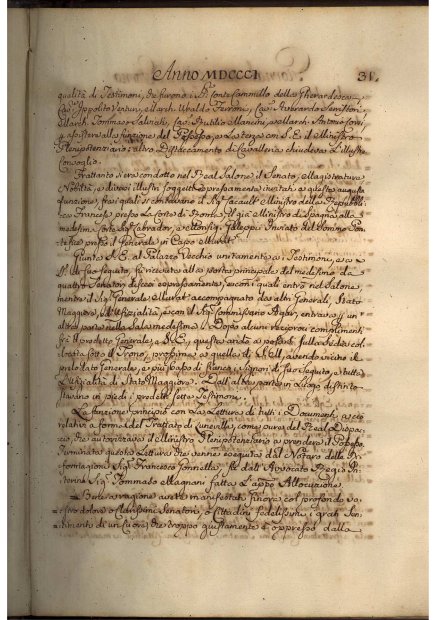 Anno MDCCCI 31.
qualità di Testimoni, che furono i SS.ri Conte Cammillo della Gherardesca,
Cav. Ippolito Venturi, March. Ubaldo Ferroni, Cav. Averardo Serristori
March. Tommaso Salviati, Cav. Mancini, e March. Antonio Corsi
assistere alla funzione del Possesso, e La terza con S. E. il Ministro
Plenipotenziario; altro Distaccamento di Cavalleria chiudeva l'illustre
Convoglio.
Frattanto si era condotto nel Real Salone il Senato, Magistratura
Nobiltà, e diversi illustri soggetti espressamente invitati a questa augusta
funzione, fra i quali si contavano il Sig. Ministro della Repubbli-
ca Francese presso La Corte di Roma, il già Ministro di Spagna alla
medesima Corte Sig. Labrador, e Monsig. Inviato del Sommo Pon-
tefice presso il Generale in Capo Murat.
Giunta S. E. al Palazzo Vecchio unitamente ai Testimoni, e a
suo seguito, fu ricevuta alla porta principale del medesimo da
quattro Senatori discesi espressamente, e con i quali entrò nel Salone,
mentre il Sig. Generale Murat accompagnato da altri Generali, Stato
Maggiore, Uffizialità, e con il Sig. Commissario entrava per un'
altra porta nella Sala medesima. Dopo alcuni reciproci complimenti
fra il prodetto Generale, e S. E., questa andò a porsi sulla Sedia col-
locata sotto il Trono, prossima a quella di S. M., avendo vicino il
prelodato Generale, e più basso di fianco i Signori di suo seguito, e tutta
L'Uffizialità di Stato Maggiore. Dall'altra parte in Luogo distinto
stavano in piedi i prodetti sette Testimoni.
La funzione principiò con La Lettura di tutti i Documenti, a ciò
relativi a forma del Trattato di Luneville, come pure del Real Dispac-
cio, che autorizzava il Ministro Plenipotenziario a prendere il Possesso.
Terminata questa Lettura che venne eseguita dal Notaro delle Ri-
formagioni Sig. Francesco fu dall'Avvocato Regio In-
terino Sig. Tommaso Magnani fatta L'appo Allocuzione.
ragione avete manifestati finora col profondo va-
stro dolore o Chiarissimi Senatori, o Cittadini fedelissimi, i grati Sen-
timenti di un Cuore che troppo giustamente è oppresso dalla